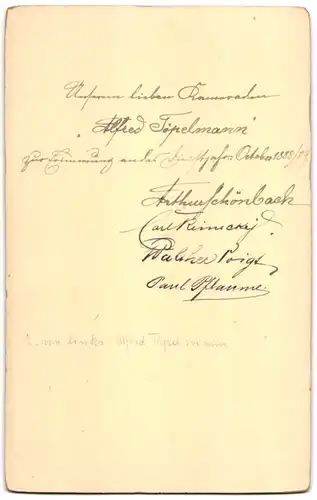 Unserem lieben Kameraden
"Alfred Töpelmann"
zur Erinnerung an das Dienstjahr October 1888/89
Arthur Schönbach
Carl Reinecke
Walther Voigt
Paul Pflaume
2. von links Alfred Töpelmann